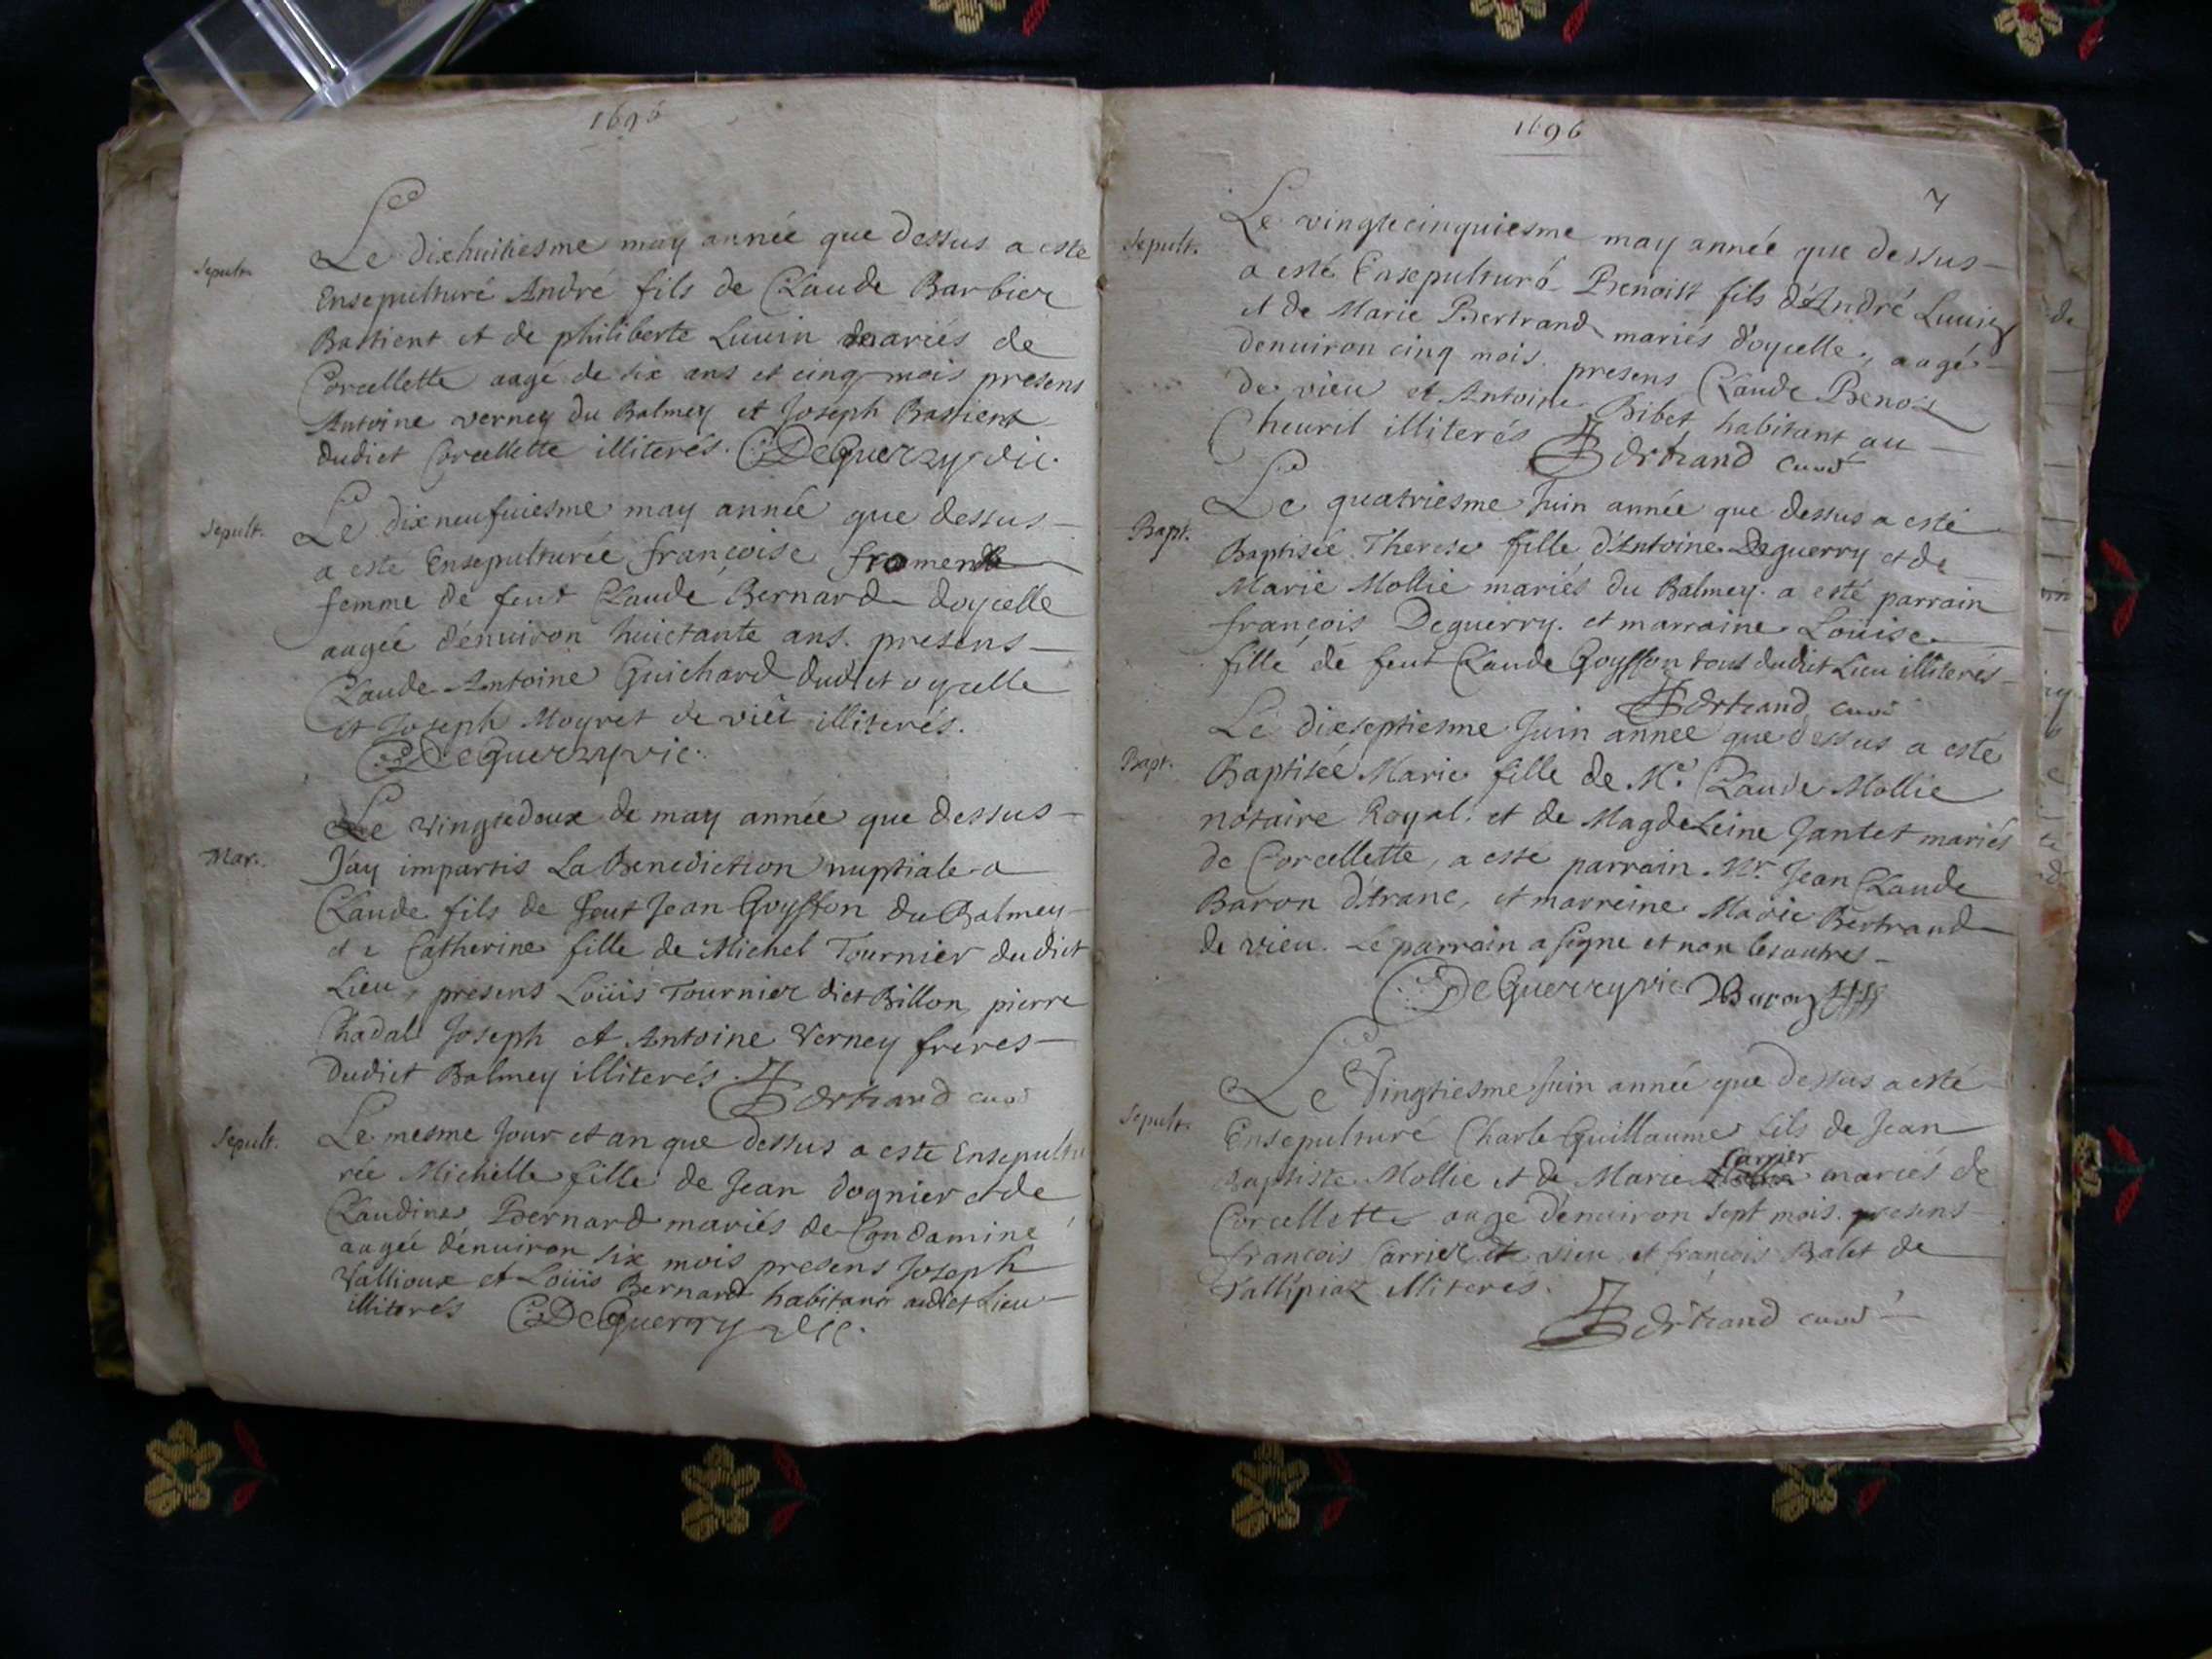 1696
Sepult.
Le dixhuitiesme may année que dessus a esté
Ensepulturé André fils de Claude Barbier
Bastient et de philiberte Luuin mariés de
Corcellette aagé de six ans et cinq mois presens
Antoine verney du Balmey et Joseph Bastient
dudict Corcellette illiterés. DeGuerry vic.
Sepult.
Le dixneufuiesme may année que dessus
a esté Ensepulturée françoise froment
femme de feut Claude Bernard doycelle
aagée d'enuiron huictante ans. presens
Claude Antoine Guichard dudict oycelle
et Joseph Moyret de vieu illiterés.
DeGuerry vic.
Mar.
Le vingtedeux de may année que dessus
J'ay impartis La Benediction nuptiale a
Claude fils de feut Jean Goyffon du Balmey
et a Catherine fille de Michel Tournier dudict
Lieu, presens Loüis Tournier dict Billon, pierre
Chadal Joseph et Antoine Verney freres
dudict Balmey illiterés. Bertrand curé
Sepult.
Le mesme Jour et an que dessus a este Ensepultu
rée Michelle fille de Jean dognier et de
Claudine Bernard mariés de Condamine
aagée d'enuiron six mois presens Joseph
Vallioux et Loüis Bernard habitans audict Lieu
illiterés DeGuerry vic.
1696
7
Sepult.
Le vingtecinquiesme may année que dessus
a esté Ensepulturé Benoist fils d'André Luuin
et de Marie Bertrand mariés d'oycelle, aagé
denuiron cinq mois. presens Claude Benoît
de vieu et Antoine Bibet habitant au
Cheuril illiterés Bertrand curé
Bapt.
Le quatriesme Juin année que dessus a esté
Baptisée Therese fille d'Antoine Deguerry et de
Marie Mollie mariés du Balmey. a esté parrain
françois Deguerry. et marraine Loüise
fille de feut Claude Goyffon tous dudict Lieu illiterés
Bertrand curé
Bapt.
Le dixseptiesme Juin année que dessus a esté
Baptisée Marie fille de Me. Claude Mollie
notaire Royal. et de Magdeleine Jantet mariés
de Corcellette, a esté parrain Mr. Jean Claude
Baron d'tranc, et marreine Marie Bertrand
de vieu. Le parrain a signe et non les autres
DeGuerry vic Baron
Sepult.
Le Vingtiesme Juin année que dessus a esté
Ensepulturé Charle Guillaume fils de Jean
Baptiste Mollie et de Marie Carrier mariés de
Corcellette aagé d'enuiron sept mois. presens
francois Carrier de vieu et francois Balet de
Vallipiaz illiteres.
Bertrand curé